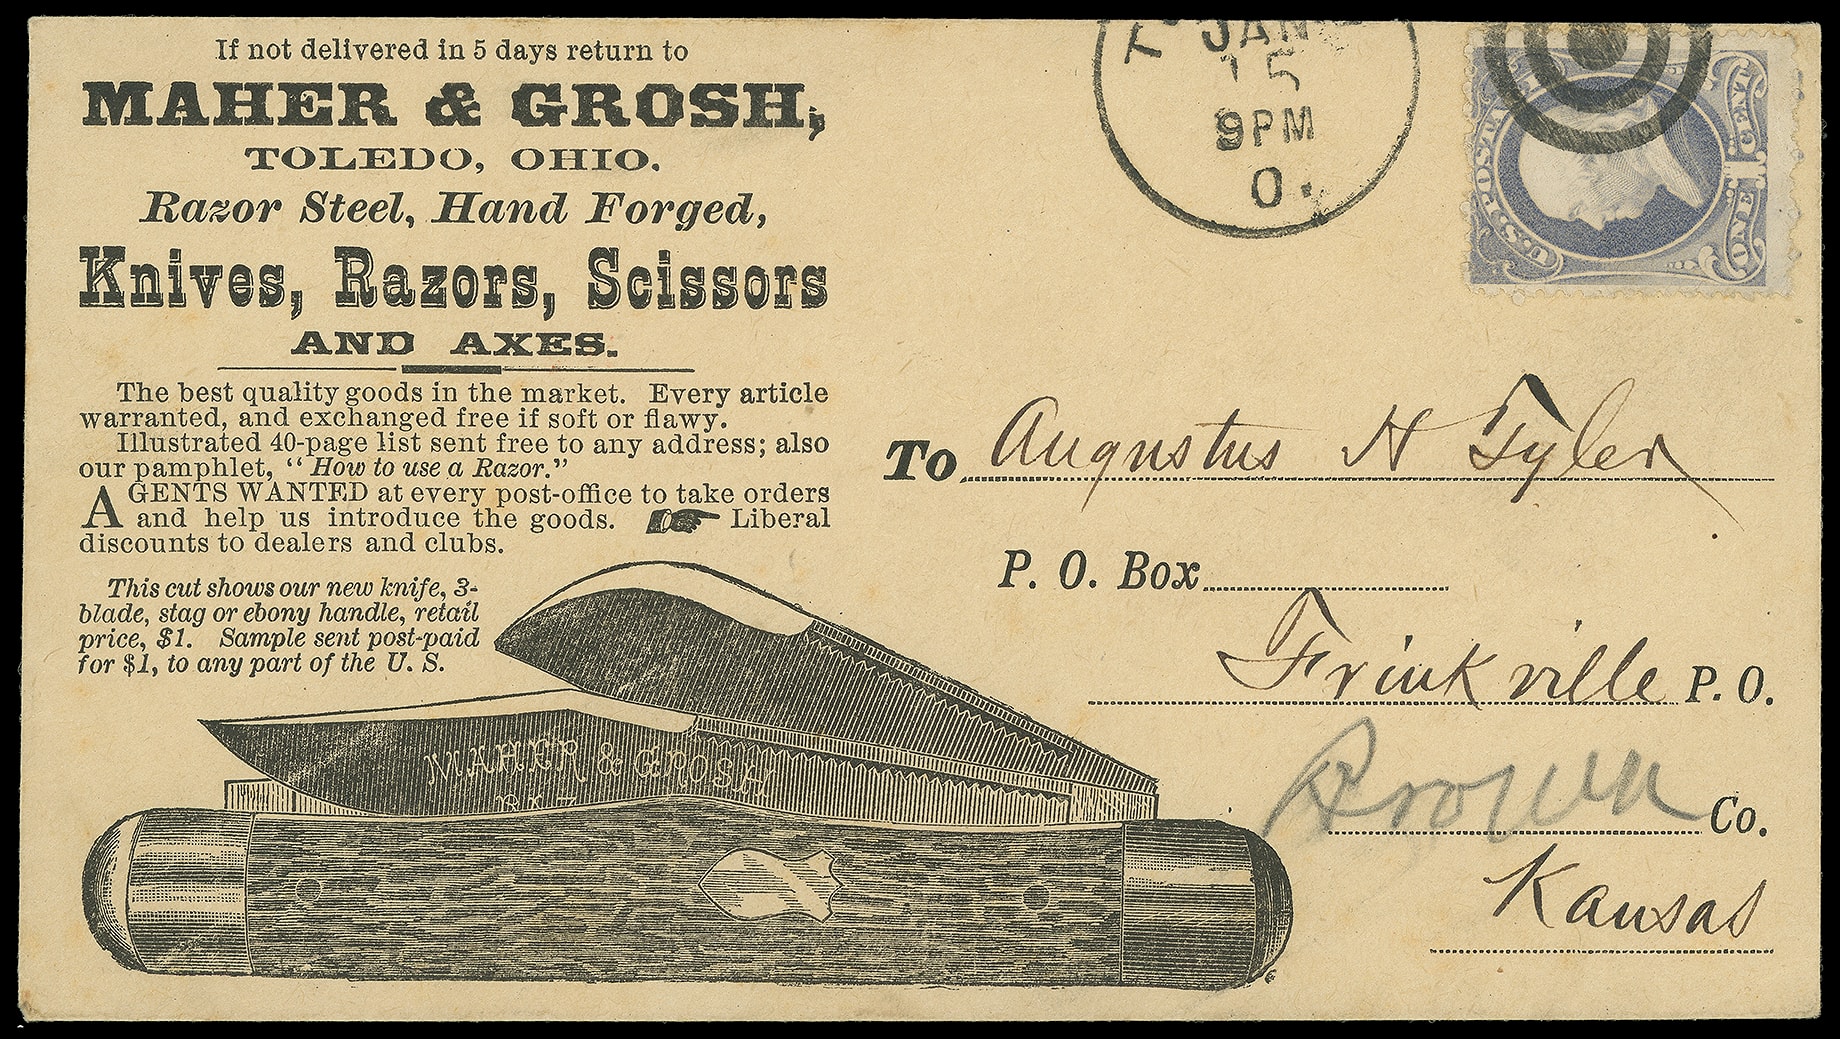 If not delivered in 5 days return to
MAHER & GROSH,
TOLEDO, OHIO.
Razor Steel, Hand Forged,
Knives, Razors, Scissors
AND AXES.
The best quality goods in the market. Every article
warranted, and exchanged free if soft or flawy.
Illustrated 40-page list sent free to any address; also
our pamphlet, "How to use a Razor."
AGENTS WANTED at every post-office to take orders
and help us introduce the goods. Liberal
discounts to dealers and clubs.
This cut shows our new knife, 3-
blade, stag or ebony handle, retail
price, $1. Sample sent post-paid
for $1, to any part of the U. S.
MAHER & GROSH
JAN
15
9PM
O.
U.S. POSTAGE
ONE 1 CENT
To Augustus H Tyler
P. O. Box
Frinkville P. O.
Brown Co.
Kansas